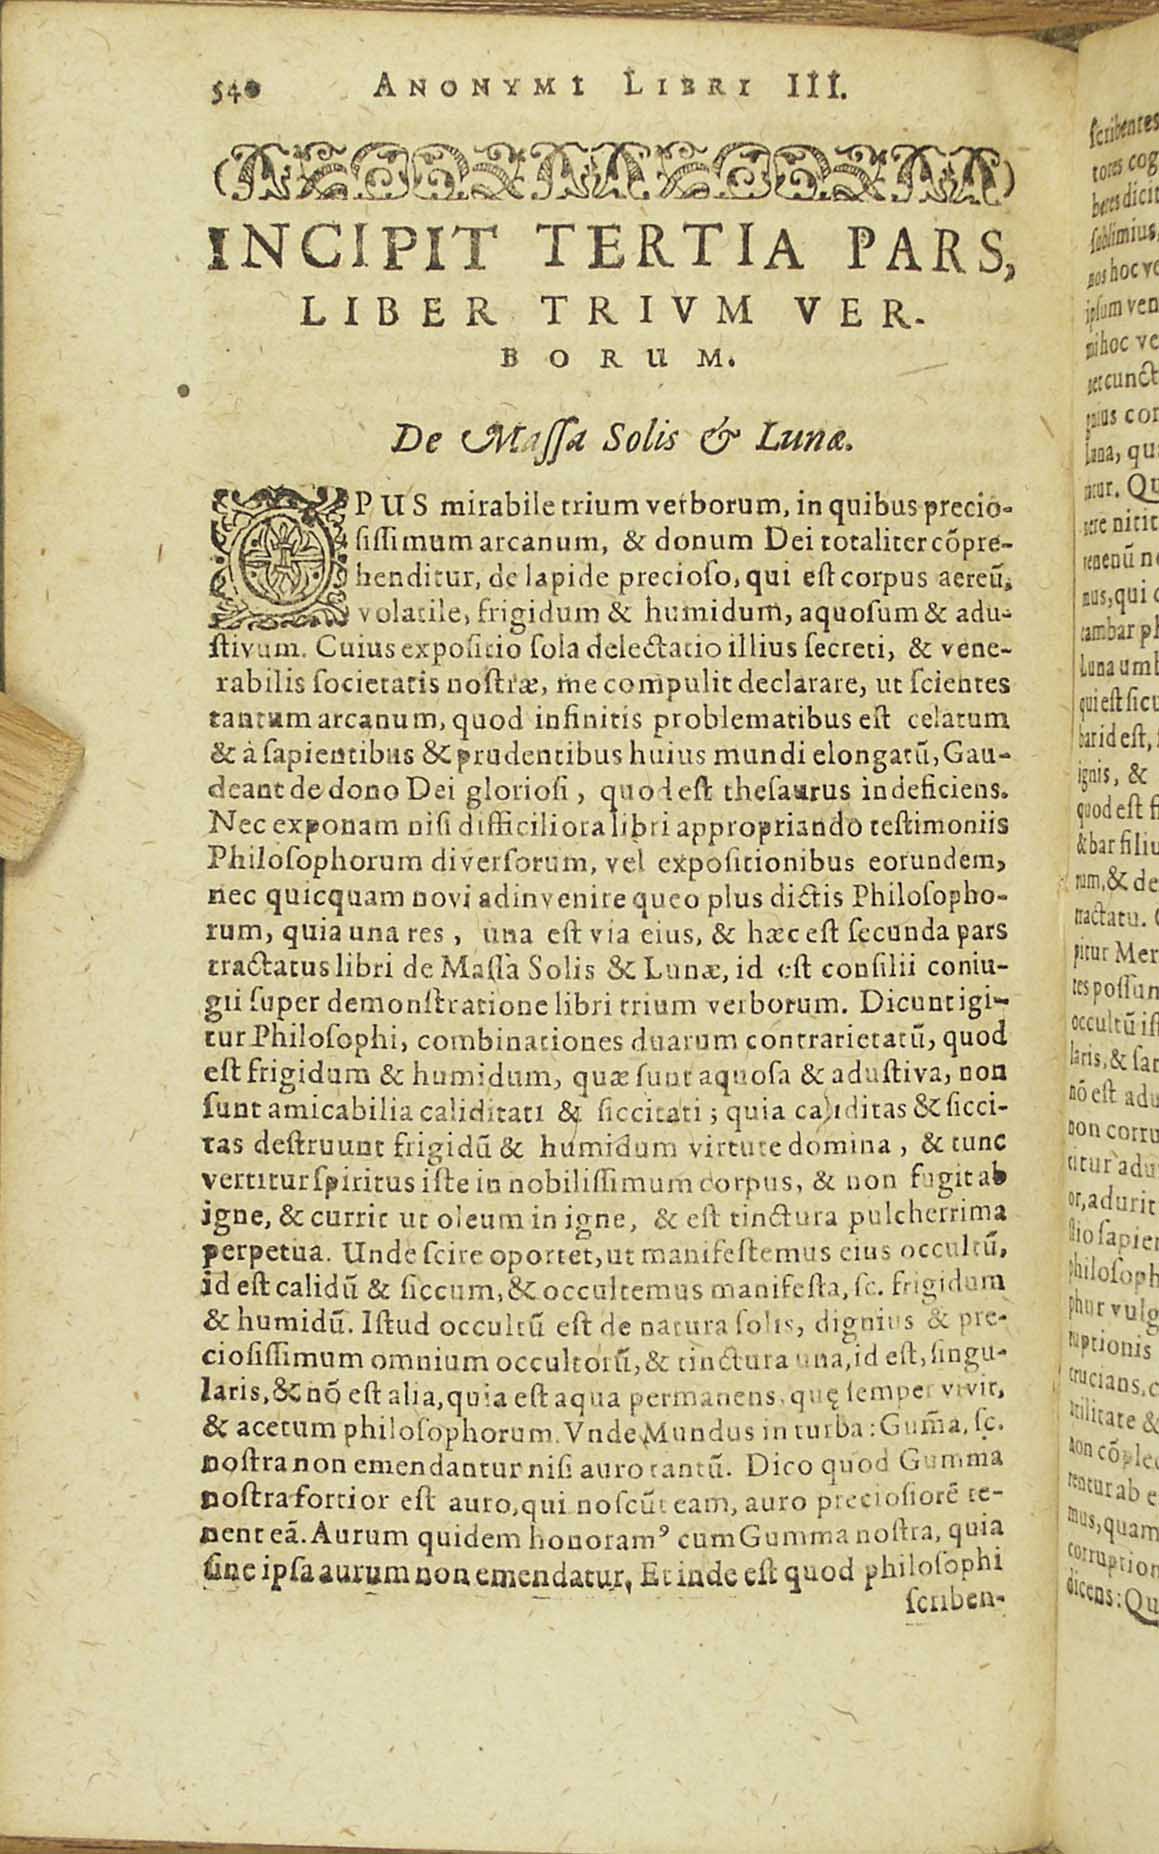 540 ANONYMI LIBRI III.
INCIPIT TERTIA PARS,
LIBER TRIVM VER-
BORUM.
De Massa Solis & Lunæ.
OPUS mirabile trium verborum, in quibus precio-
sissimum arcanum, & donum Dei totaliter cõpre-
henditur, de lapide precioso, qui est corpus aereũ,
volatile, frigidum & humidum, aquosum & adu-
stivum. Cuius expositio sola delectatio illius secreti, & vene-
rabilis societatis nostræ, me compulit declarare, ut scientes
tantum arcanum, quod infinitis problematibus est celatum
& à sapientibus & prudentibus huius mundi elongatũ, Gau-
deant de dono Dei gloriosi, quod est thesaurus indeficiens.
Nec exponam nisi difficiliora libri appropriando testimoniis
Philosophorum diversorum, vel expositionibus eorundem,
nec quicquam novi adinvenire queo plus dictis Philosopho-
rum, quia una res, una est via eius, & hæc est secunda pars
tractatus libri de Massa Solis & Lunæ, id est consilii coniu-
gii super demonstratione libri trium verborum. Dicunt igi-
tur Philosophi, combinationes duarum contrarietatũ, quod
est frigidum & humidum, quæ sunt aquosa & adustiva, non
sunt amicabilia caliditati & siccitati; quia caliditas & sicci-
tas destruunt frigidũ & humidum virtute domina, & tunc
vertitur spiritus iste in nobilissimum corpus, & non fugit ab
igne, & currit ut oleum in igne, & est tinctura pulcherrima
perpetua. Unde scire oportet, ut manifestemus eius occultũ,
id est calidũ & siccum, & occultemus manifesta, sc. frigidum
& humidũ. Istud occultũ est de natura solis, dignius & pre-
ciosissimum omnium occultorũ, & tinctura una, id est, singu-
laris, & nõ est alia, quia est aqua permanens, quę semper vivit,
& acetum philosophorum. Vnde Mundus in turba: Gum̃a, sc.
nostra non emendantur nisi auro tantũ. Dico quod Gumma
nostra fortior est auro, qui noscũt eam, auro preciosiorẽ te-
nent eã. Aurum quidem honoramꝰ cum Gumma nostra, quia
sine ipsa aurum non emendatur, Et inde est quod philosophi
scriben-